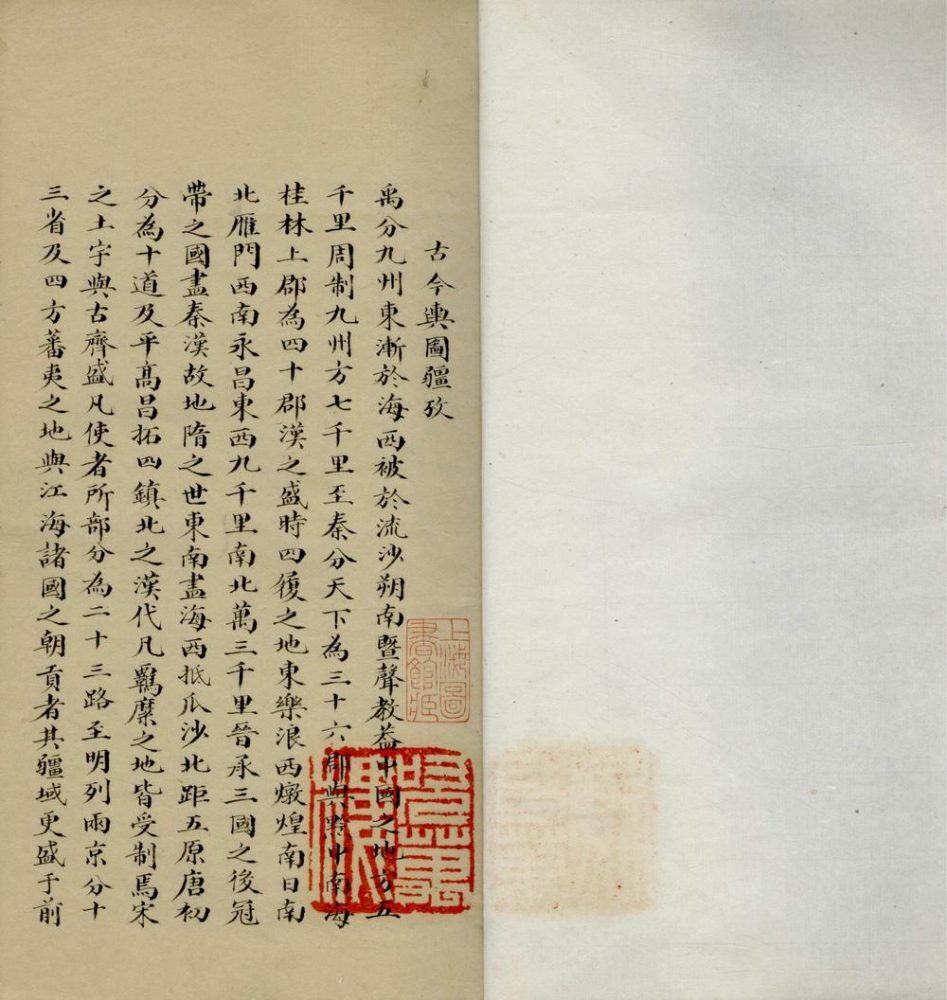 古今輿圖疆攷
禹分九州東漸於海西被於流沙朔南暨聲教葢中國之地方五
千里周制九州方七千里至秦分天下為三十六郡與黔中南海
桂林上郡為四十郡漢之盛時四履之地東樂浪西燉煌南日南
北雁門西南永昌東西九千里南北萬三千里晉承三國之後冠
帶之國盡秦漢故地隋之世東南盡海西抵瓜沙北距五原唐初
分為十道及平髙昌拓四鎮北之漢代凡羈縻之地皆受制焉宋
之土宇與古齊盛凡使者所部分為二十三路至明列兩京分十
三省及四方蕃夷之地與江海諸國之朝貢者其疆域更盛于前
上海圖
書館藏